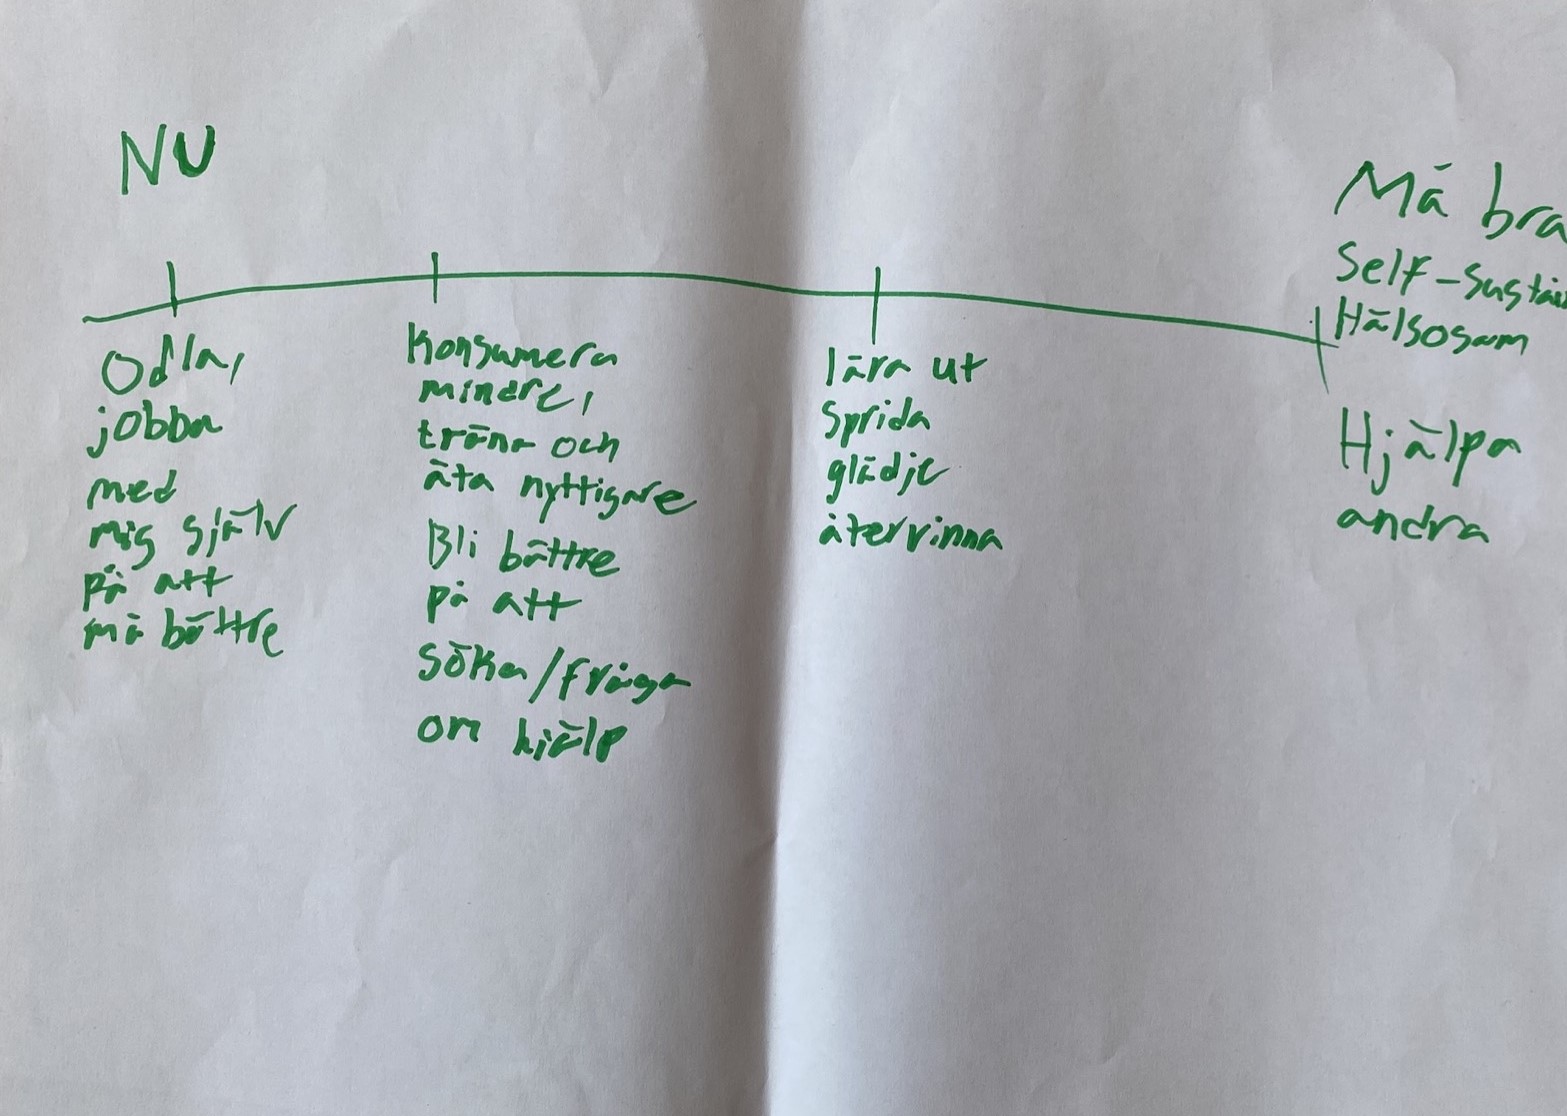 NU
Odla,
jobba
med
mig själv
på att
må bättre
Konsumera
mindre,
träna och
äta nyttigare
Bli bättre
på att
söka/fråga
om hjälp
lära ut
sprida
glädje
återvinna
Må bra
Self-sustai
Hälsosam
Hjälpa
andra